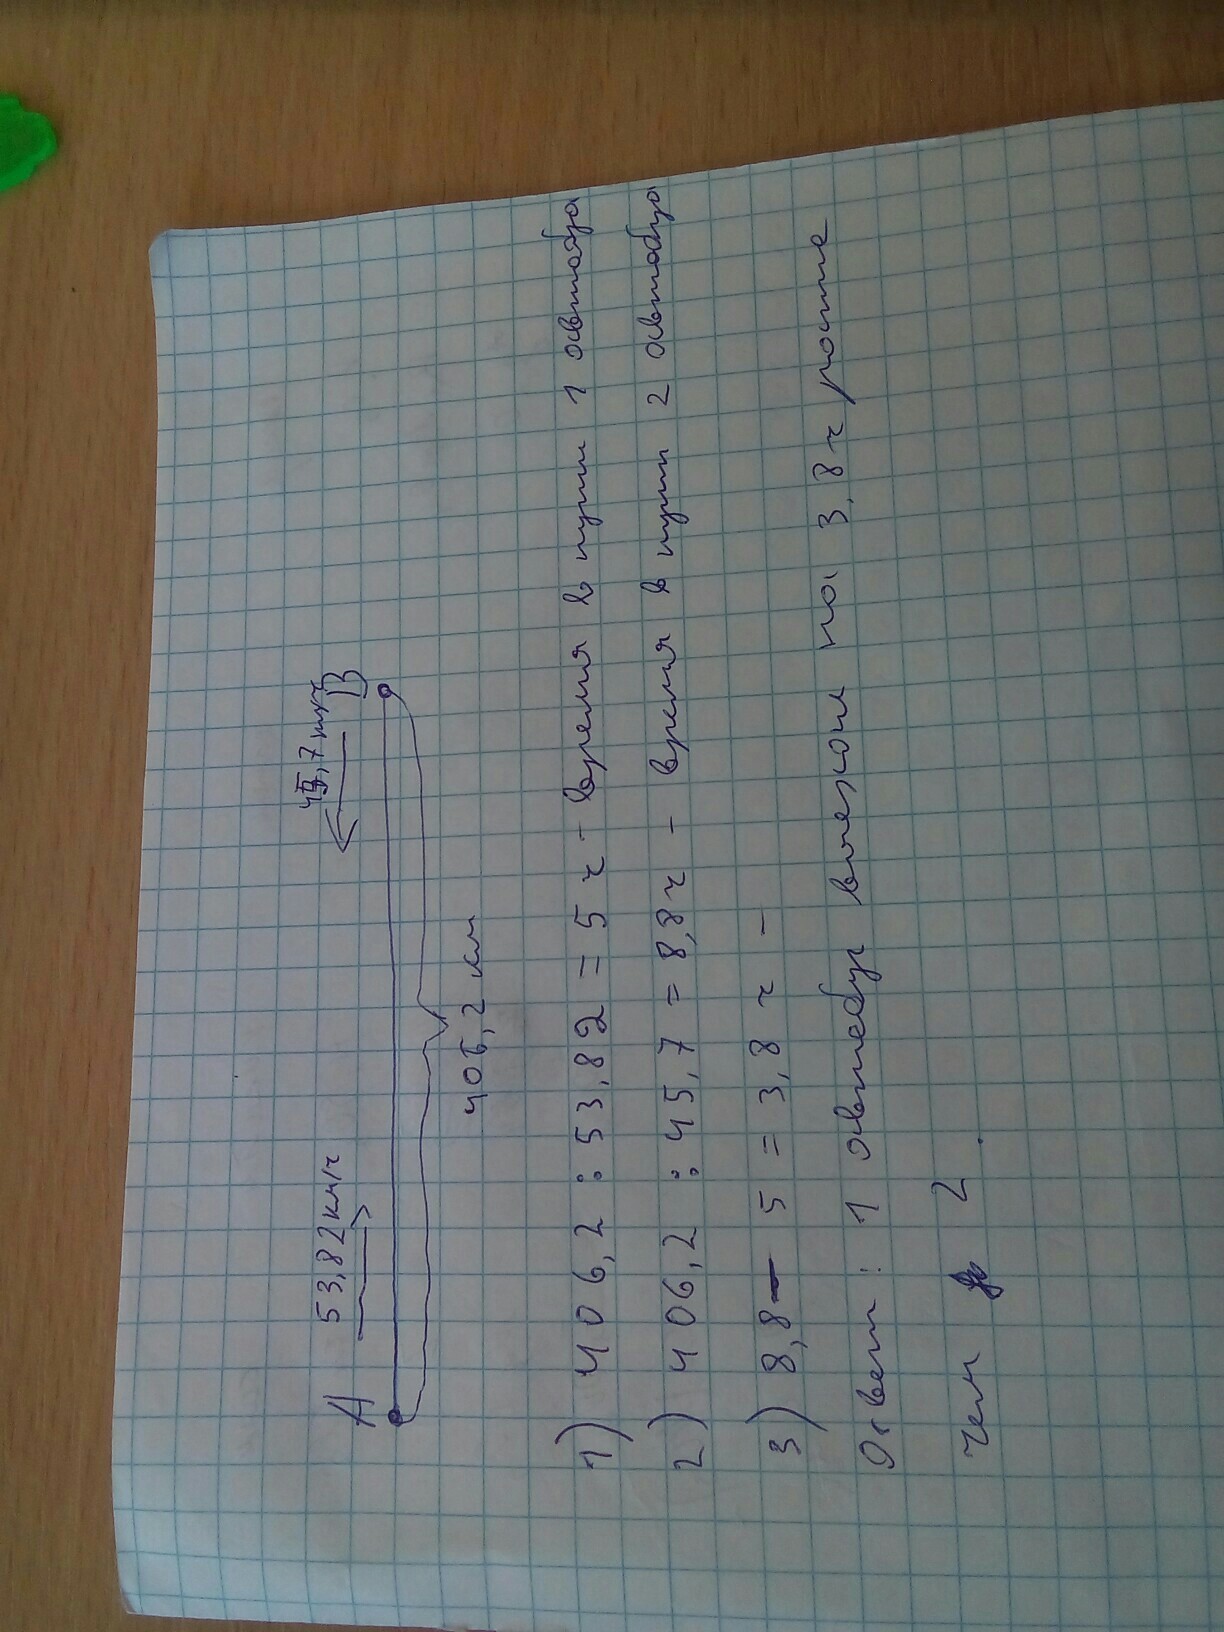 53,82 км/ч
45,7 км/ч
A
B
406,2 км
1) 406,2 : 53,82 = 5 ч - время в пути 1 автобуса
2) 406,2 : 45,7 = 8,8 ч - время в пути 2 автобуса
3) 8,8 - 5 = 3,8 ч -
Ответ: 1 автобус выехал на 3,8 ч раньше
чем 2.